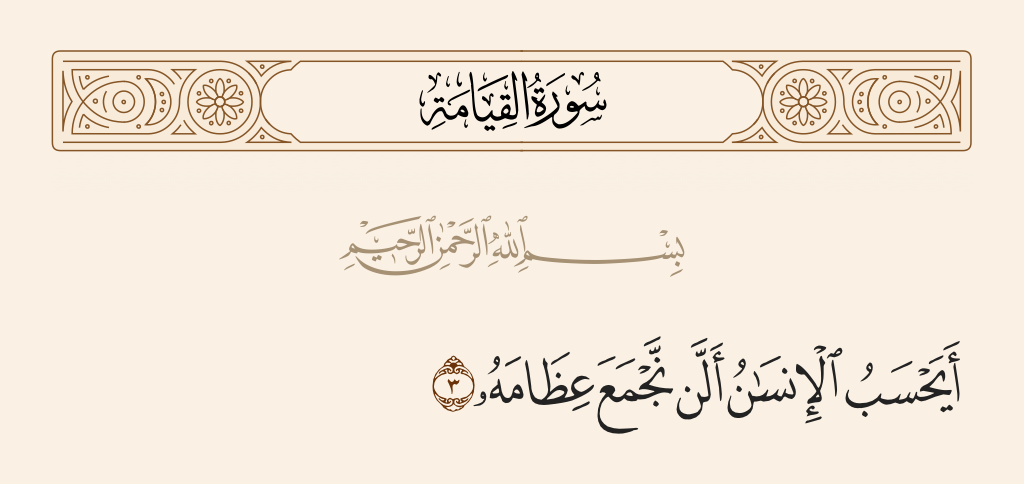 سُورَةُ القِيَامَةِ
بِسْمِ ٱللَّهِ ٱلرَّحْمَٰنِ ٱلرَّحِيمِ
أَيَحْسَبُ ٱلْإِنسَٰنُ أَلَّن نَّجْمَعَ عِظَامَهُۥ ٣